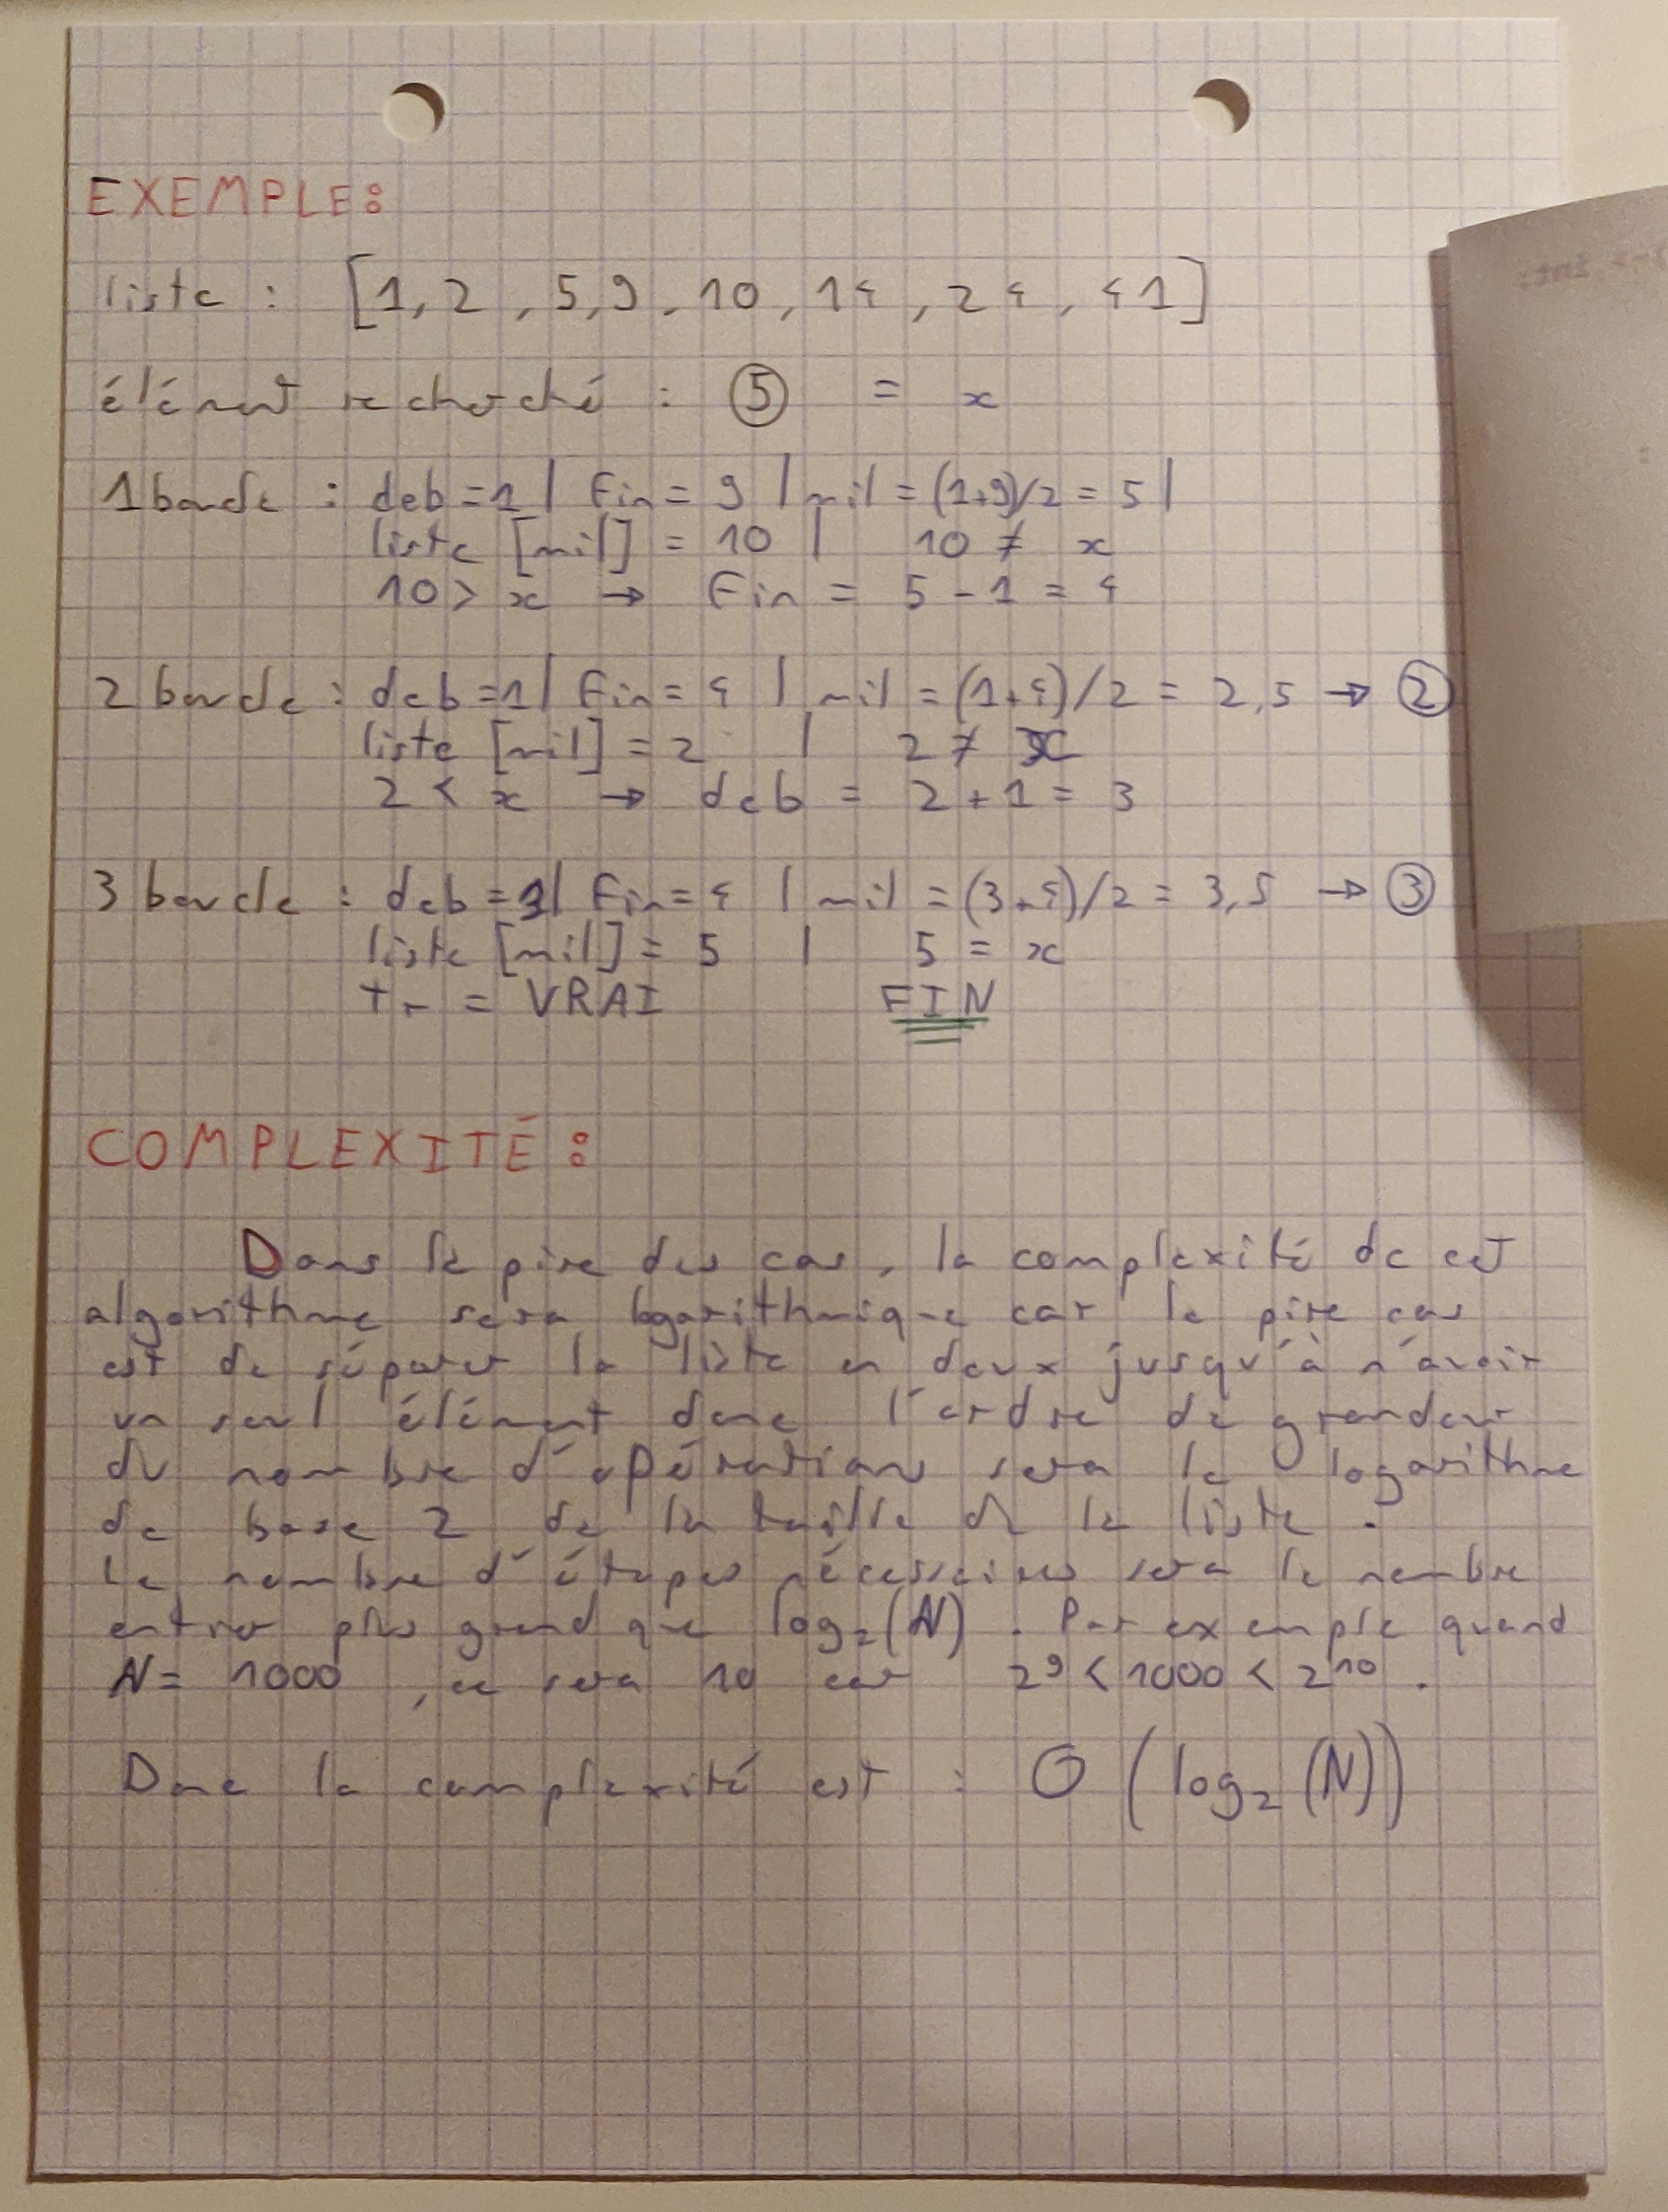 EXEMPLE:
liste : [1, 2, 5, 9, 10, 14, 24, 41]
élément recherché : 5 = x
1 boucle : deb = 1 | Fin = 9 | mil = (1+9)/2 = 5 |
liste [mil] = 10 | 10 ≠ x
10 > x → Fin = 5 - 1 = 4
2 boucle : deb = 1 | Fin = 4 | mil = (1+4)/2 = 2,5 → 2
liste [mil] = 2 | 2 ≠ x
2 < x → deb = 2 + 1 = 3
3 boucle : deb = 3 | Fin = 4 | mil = (3+4)/2 = 3,5 → 3
liste [mil] = 5 | 5 = x
Tr = VRAI FIN
COMPLEXITÉ :
Dans le pire des cas, la complexité de cet
algorithme sera logarithmique car le pire cas
est de séparer la liste en deux jusqu'à n'avoir
un seul élément donc l'ordre de grandeur
du nombre d'opérations sera le logarithme
de base 2 de la taille de la liste.
Le nombre d'étapes nécessaires sera le nombre
entier plus grand que log₂(N). Par exemple quand
N = 1000, ce sera 10 car 2⁹ < 1000 < 2¹⁰.
Donc la complexité est : O (log₂(N))
int: